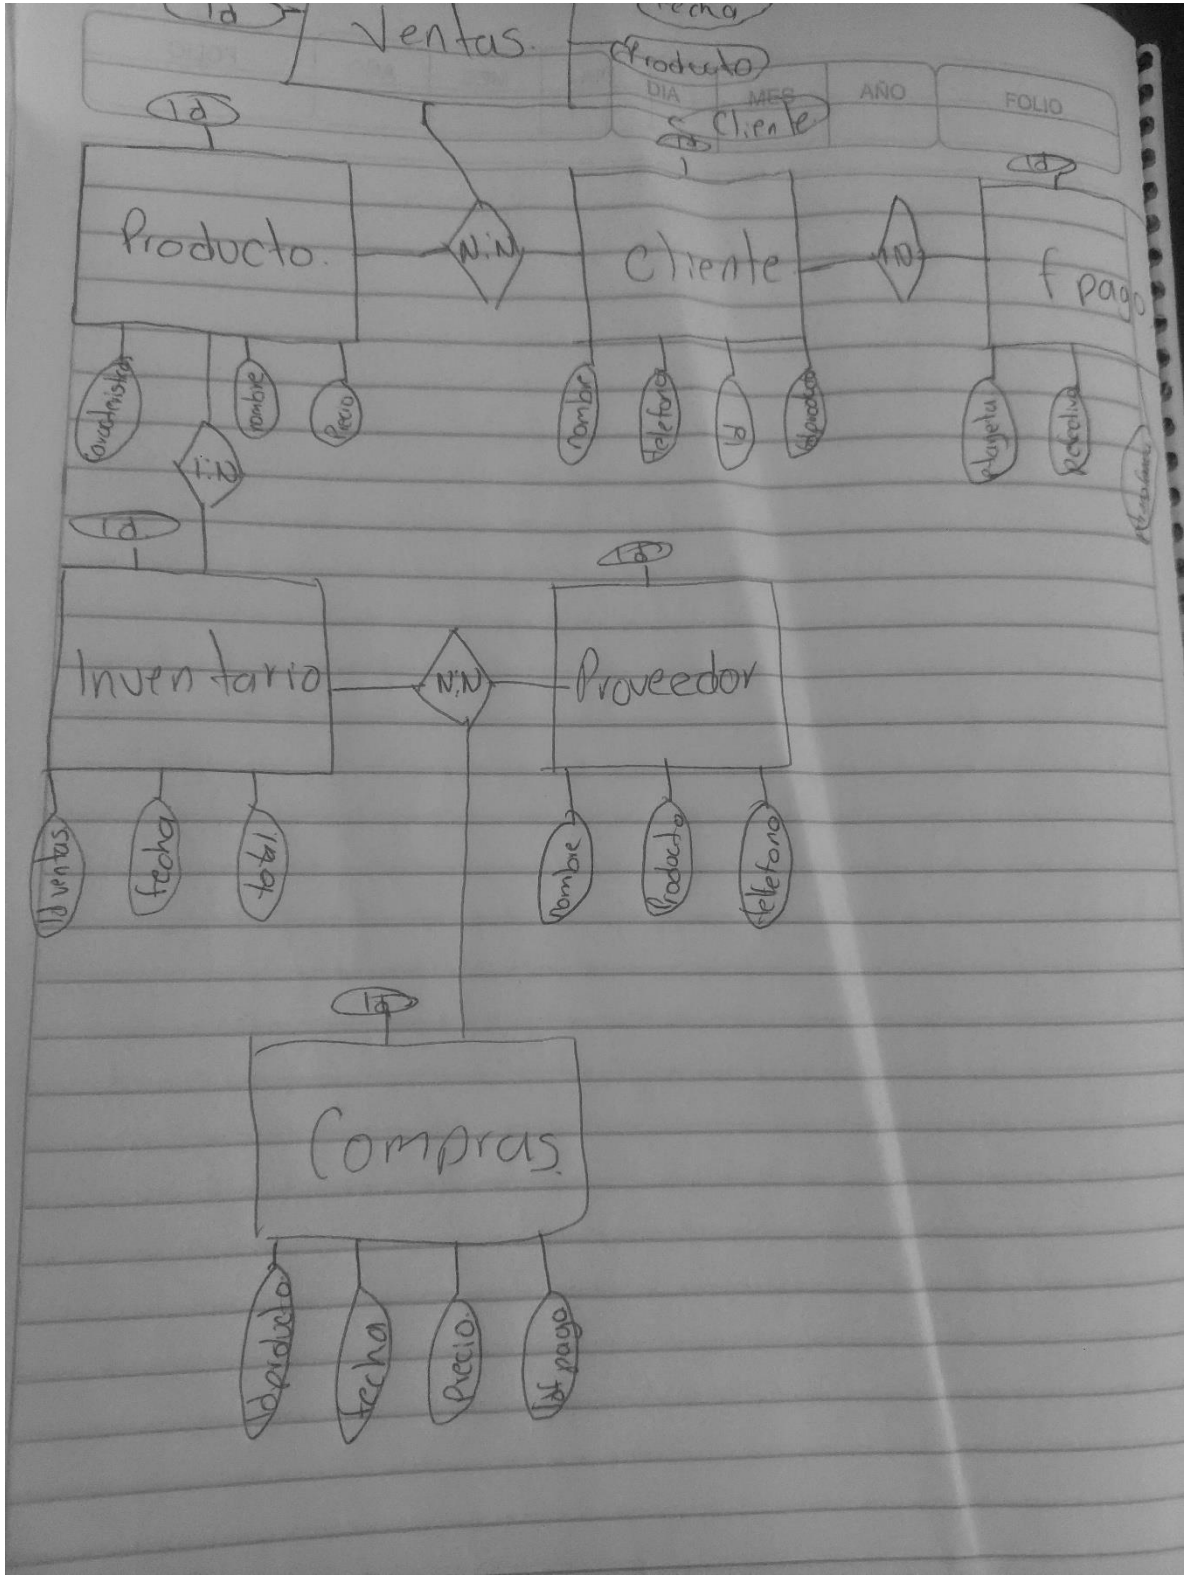 Id
Ventas.
fecha
Producto
Cliente
DIA
MES
AÑO
FOLIO
Id
Id
Id
Producto.
N:N
Cliente
f pago
nombre
Precio
nombre
telefono
Id
Id producto
1:N
Id
Id
Inventario
N:N
Proveedor
Id ventas
fecha
total.
nombre
Producto
telefono
Id
Compras
Id producto.
fecha
Precio.
Id f pago